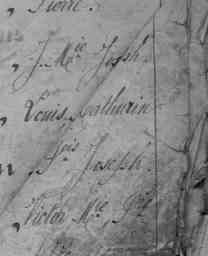 Pierre.
, J. Mie Joseph.
, Louis Mathurin
, Fois Joseph.
, Victor Mie,